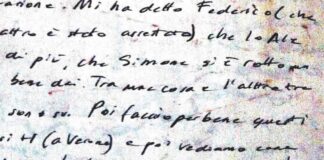 razione. Mi ha detto Federico (che
altro è stato arrestato) che lo
di più, che Simone si è rotto
bene dei. Tra una cosa e l'altra
sono su. Poi faccio per bene questi
si H (a Verno) e poi vediamo come